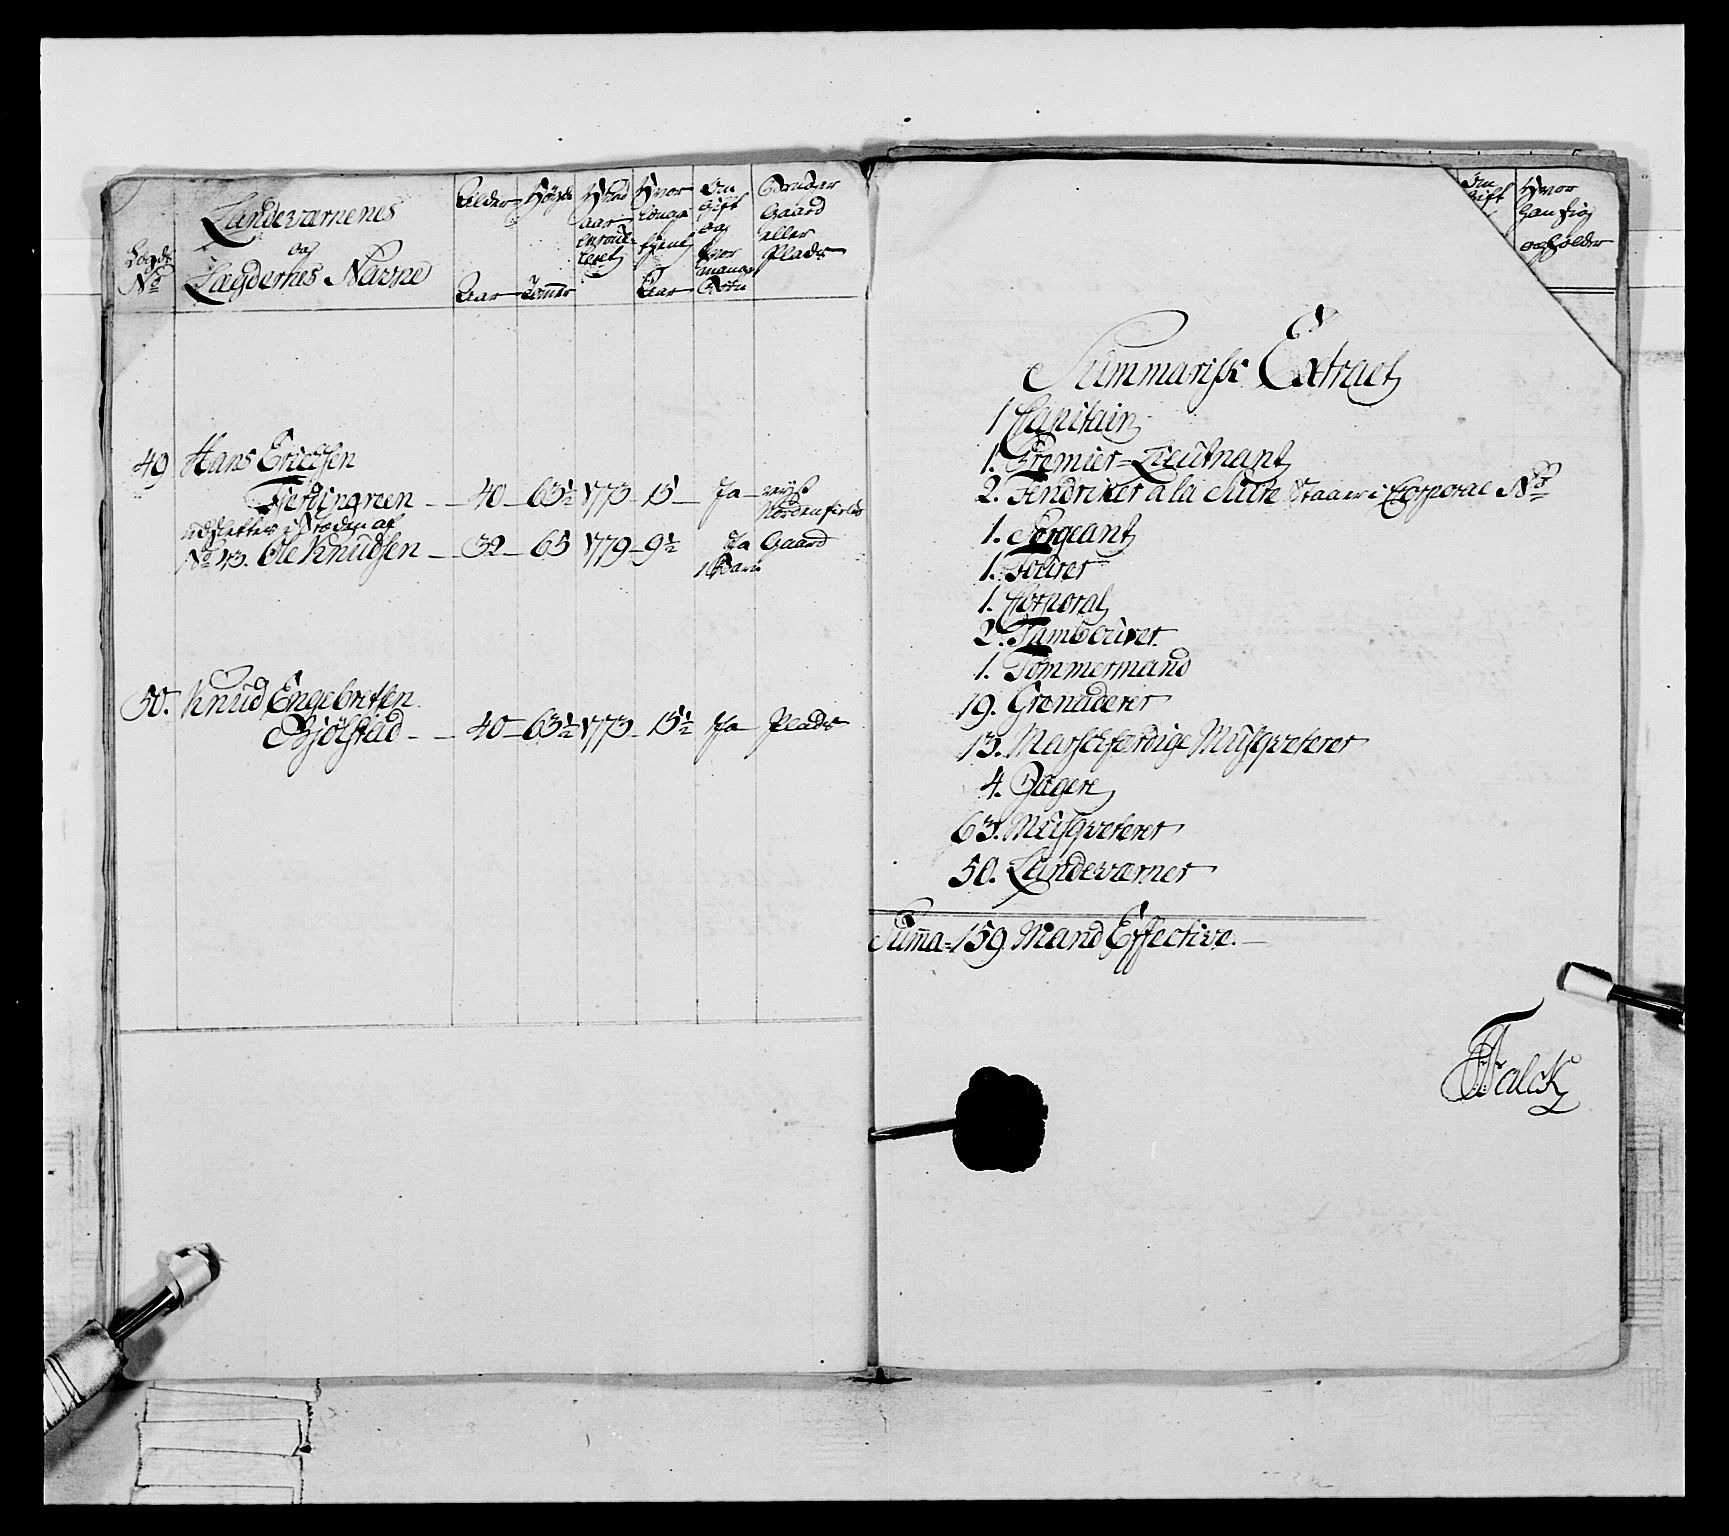 Lægds
No
Landeværnenes
og
Lægdernes Navne
Alder
Aar
Høyde
Tommer
Hvad
aar
enroul-
leret
Hvor
længe
tient
Aar
Om
Gift
og
hvor
mange
Børn
Bruger
Gaard
eller
Plads
49 Hans Erichsen
Fierdingreen - 40 - 63½ 1773 - 15 - Ja -
Nordenfields
udsletter i Steden af
No 43. Ole Knudsen - 32 - 65 1779 - 9½ Ja Gaard
1 Barn
50. Knud Engebretsen
Gjølstad - - 40 - 63½ 1773 - 15½ Ja - Plads
Om
Gift
Hvor
han sig
opholder
Summarisk Extract
1 Capitain
1. Premier-Lieutnant
2. Fendriker a la Suite Staar i Corporal No
1. Sergeant
1. Fourer
1. Corporal
2. Tambourer
1. Tømmermand
19. Grenaderer
13. Marschfærdige Musqveterer
4. Jægere
63. Musqveterer
50. Landeværner
Summa = 159. Mand Effective.
Falck